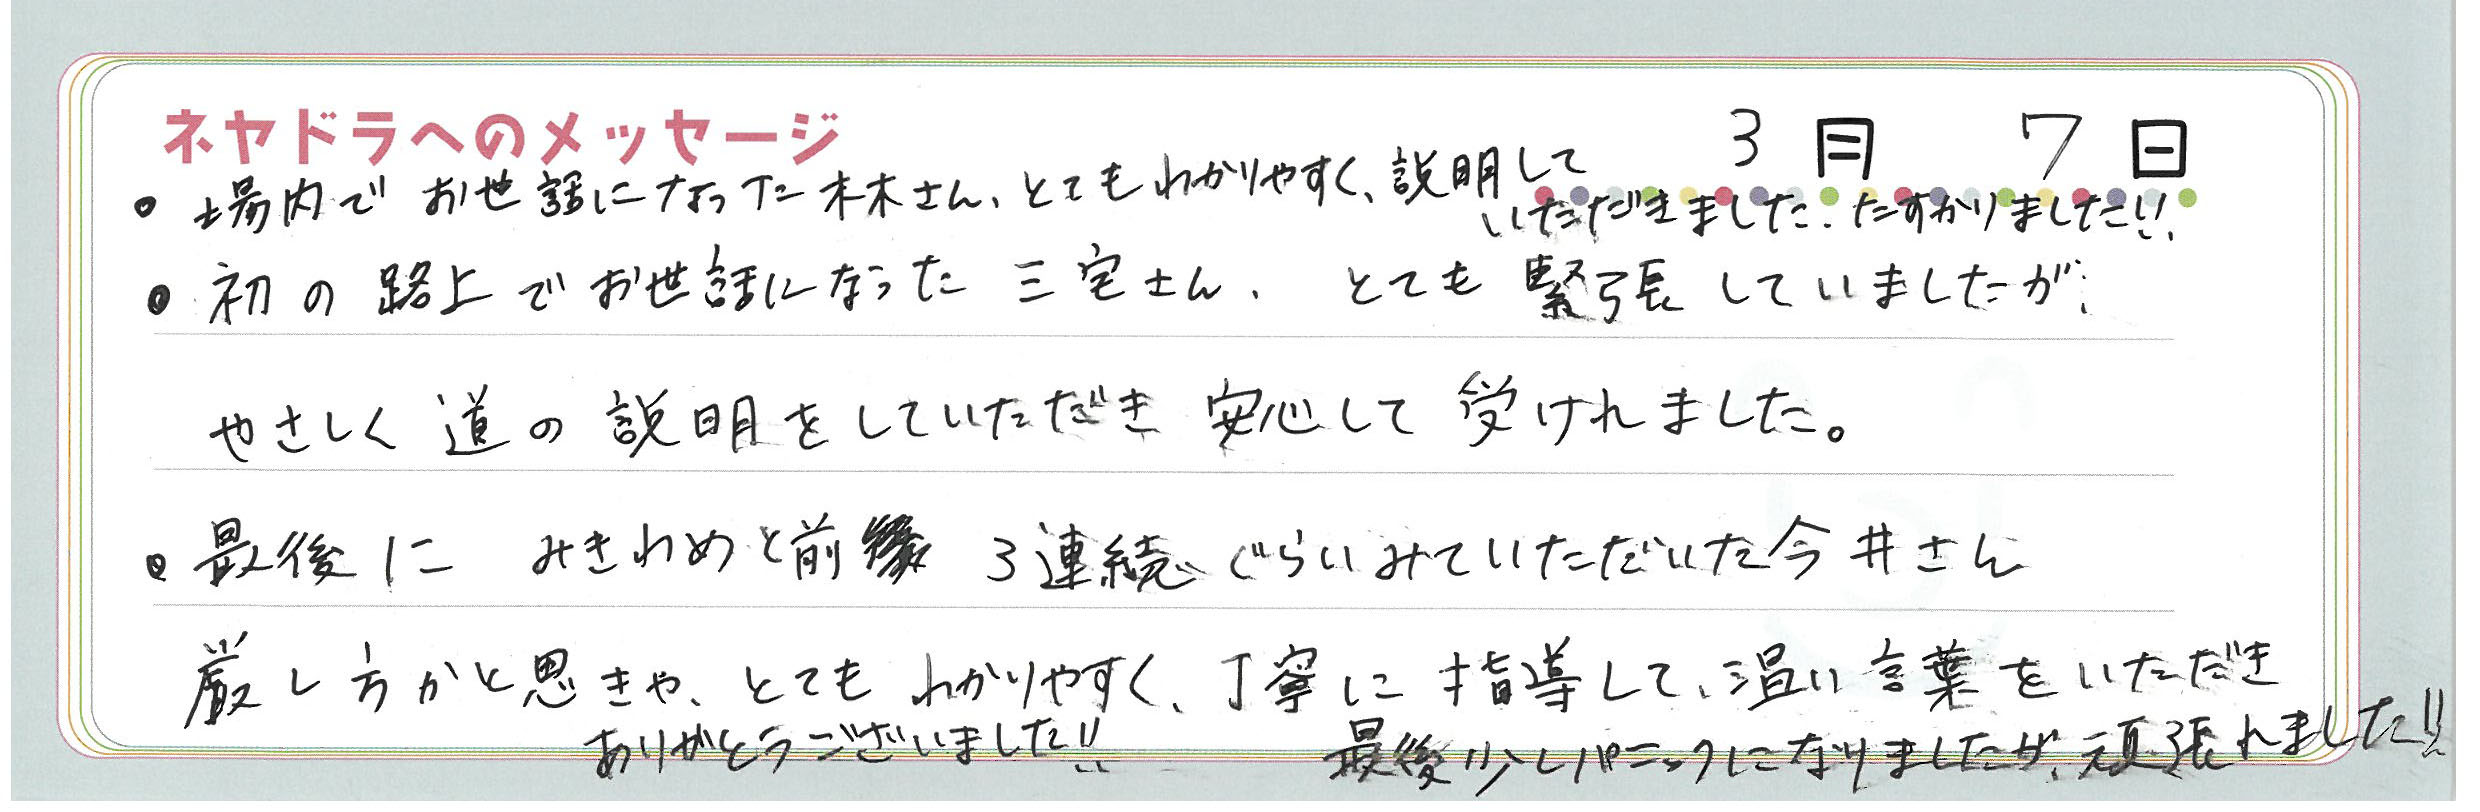 ネヤドラへのメッセージ
3月 7日
・場内でお世話になった木木さん、とてもわかりやすく、説明して
いただきました。たすかりました!!
・初の路上でお世話になった三宅さん、とても緊張していましたが、
やさしく道の説明をしていただき安心して受けれました。
・最後に みきわめと前 3連続ぐらいみていただいた今井さん
厳し方かと思きや、とてもわかりやすく、丁寧に指導して、温い言葉をいただき
ありがとうございました!!
最後少しパニックになりましたが、頑張れました!!